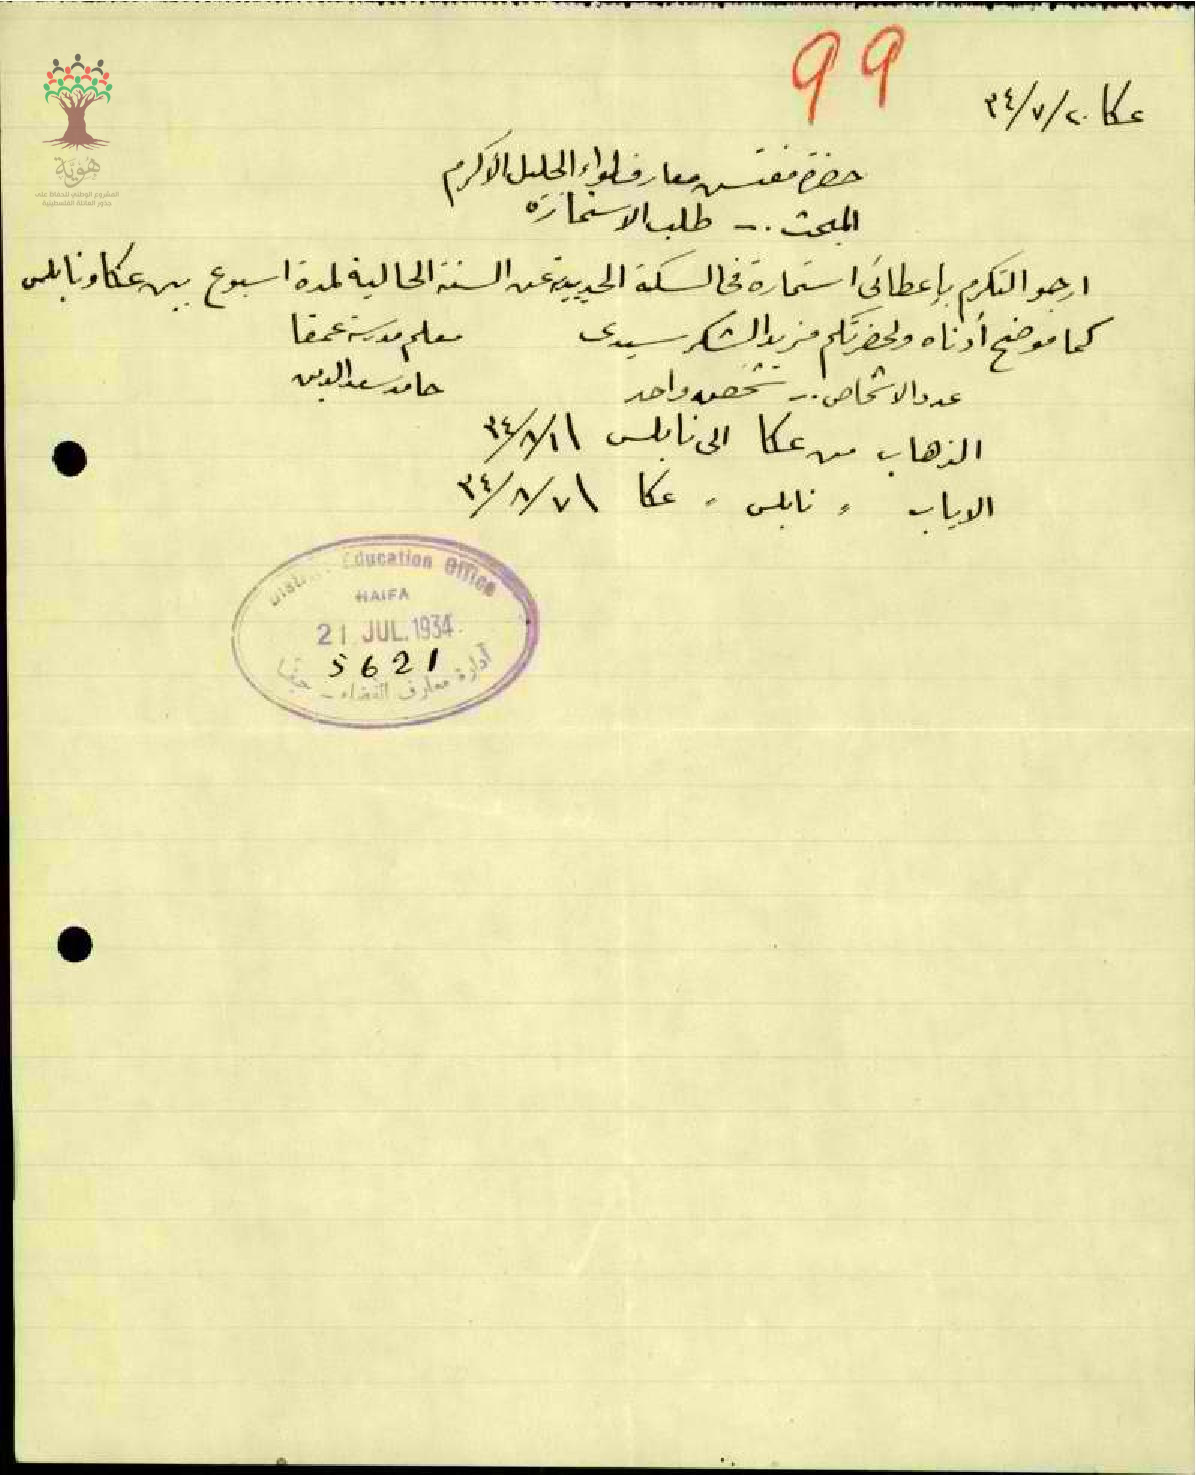 99
عكا ٢٠/٧/٣٤
حضرة مفتش معارف لواء الجليل الأكرم
المبحث :- طلب الاستمارة
ارجو التكرم بإعطائي استمارة في السكة الحديدية عن السنة الحالية لمدة اسبوع بين عكا ونابلس
كما موضح أدناه ولحضرتكم مزيد الشكر سيدي
معلم مدرسة عمقا
حامد سعد الدين
عدد الاشخاص :- شخص واحد
الذهاب من عكا الى نابلس ١/٨/٣٤
الاياب " نابلس " عكا ٧/٨/٣٤
District Education Office
HAIFA
21 JUL. 1934
5621
أدارة معارف القضاء - حيفا
هُوِيَّة
المشروع الوطني للحفاظ على
جذور العائلة الفلسطينية